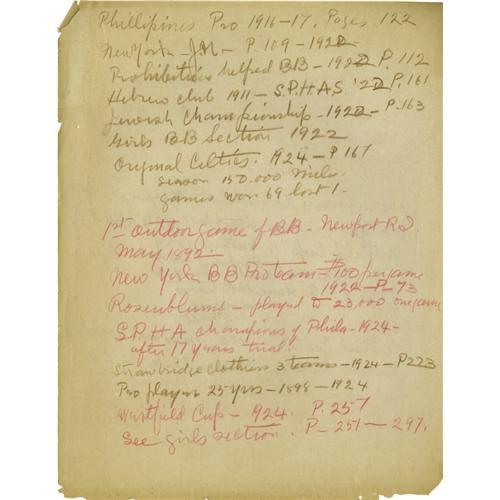 Phillipines Pro 1916-17. Pages 122
New York - - P. 109 - 1922
Prohibition helped BB - 1922 P. 112
Hebrew club 1911 - S.P.H.A.S. '22 P. 161
Jewish Championship - 1922 - P-163
Girls BB Section 1922
Original Celtics. 1924 - P 167
season 150.000 miles
games won 69 lost 1-
1st outdoor game of BB - Newport
May 1892-
New York BB Pro team - $100 per game
1922 - P-73
Rosenblums - played to 23,000 one game
S.P.H.A champions of Phila - 1924 -
after 17 years trial
Strawbridge clothier 3 teams - 1924 - P223
Pro player 25 yrs - 1898 - 1924
Westfield Cup - 1924. P. 257
See girls section. P- 251 - 297.